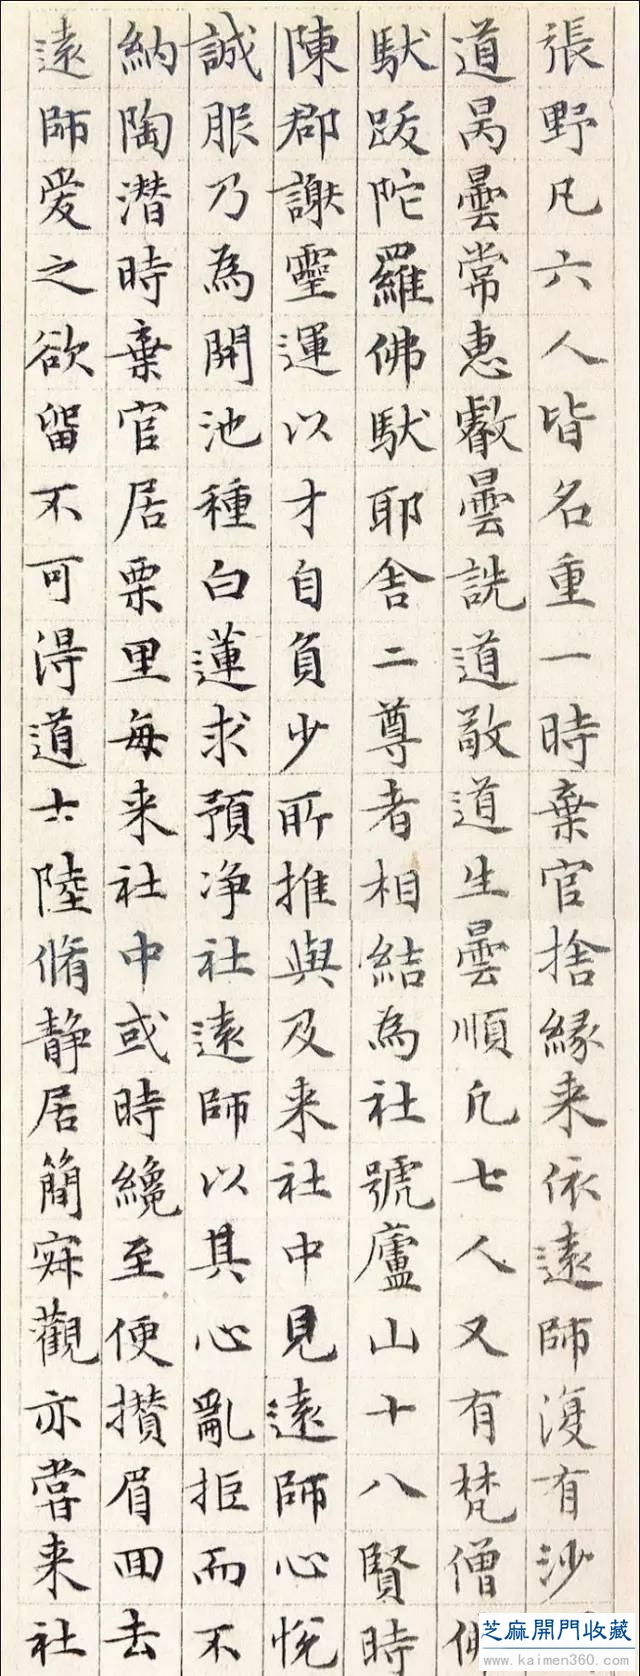 張野凡六人皆名重一時棄官捨緣来依遠師復有沙
道昺曇常惠叡曇詵道敬道生曇順凡七人又有梵僧佛
馱跋陀羅佛馱耶舍二尊者相結為社號廬山十八賢時
陳郡謝靈運以才自負少所推與及来社中見遠師心悅
誠服乃為開池種白蓮求預净社遠師以其心亂拒而不
納陶潛時棄官居栗里每来社中或時纔至便攢眉回去
遠師愛之欲留不可得道士陸脩静居簡寂觀亦嘗来社
芝麻開門收藏
www.kaimen360.com